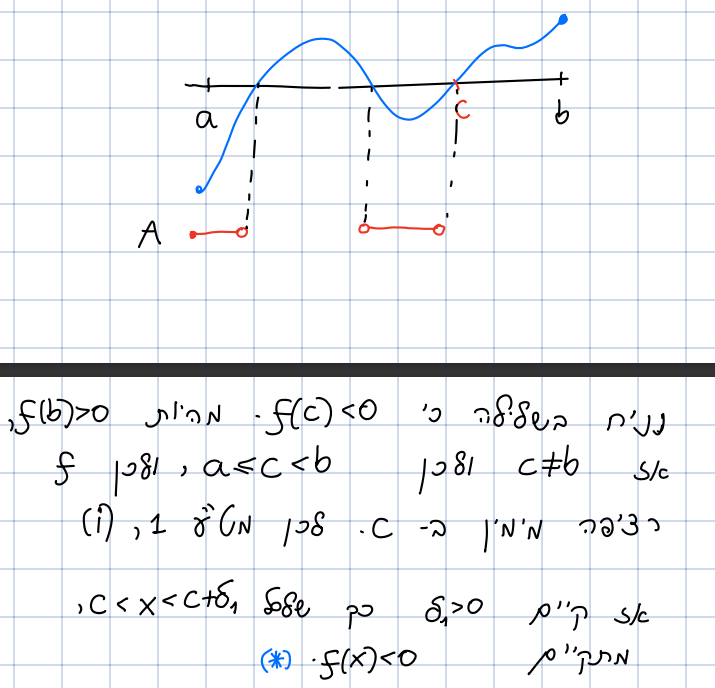 a
c
b
A
נניח בשלילה כי f(c)<0. מהיות f(b)>0,
אז c≠b ולכן a≤c<b, ולכן f
רציפה מימין ב- c. לכן מט"ע 1, (i)
אז קיים δ₁>0 כך שלכל c<x<c+δ₁,
מתקיים f(x)<0. (*)